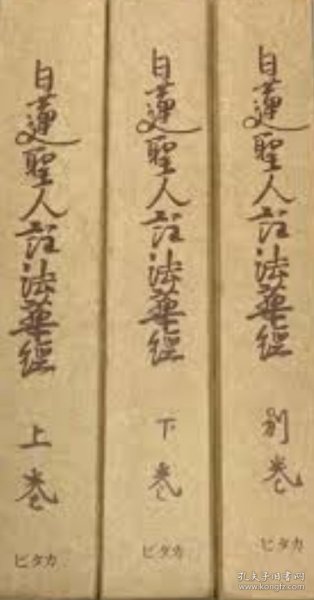 日蓮聖人註法華經
上巻
ピタカ
日蓮聖人註法華經
下巻
ピタカ
日蓮聖人註法華經
別巻
ピタカ
孔夫子旧书网